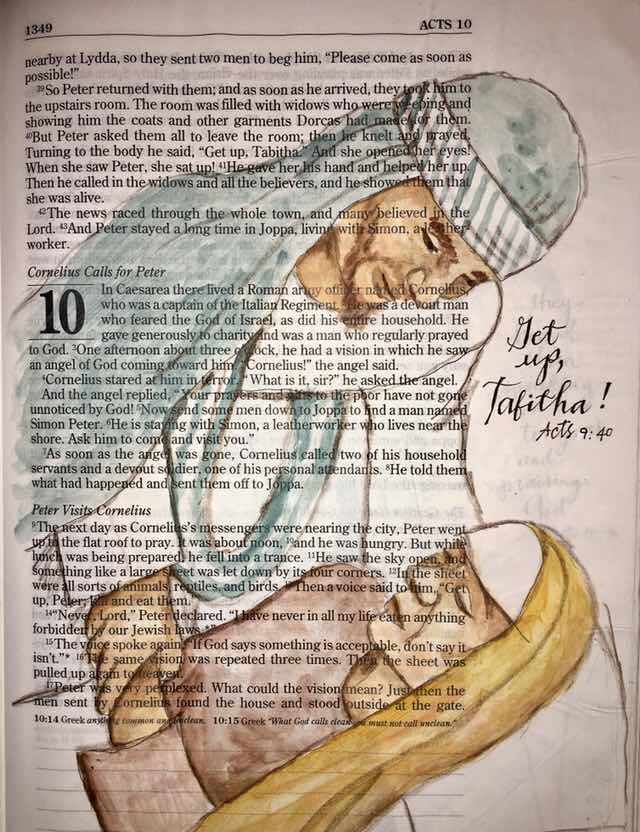 1349
ACTS 10
nearby at Lydda, so they sent two men to beg him, “Please come as soon as
possible!”
³⁹So Peter returned with them; and as soon as he arrived, they took him to
the upstairs room. The room was filled with widows who were weeping and
showing him the coats and other garments Dorcas had made for them.
⁴⁰But Peter asked them all to leave the room; then he knelt and prayed.
Turning to the body he said, “Get up, Tabitha.” And she opened her eyes!
When she saw Peter, she sat up! ⁴¹He gave her his hand and helped her up.
Then he called in the widows and all the believers, and he showed them that
she was alive.
⁴²The news raced through the whole town, and many believed in the
Lord. ⁴³And Peter stayed a long time in Joppa, living with Simon, a leather-
worker.
Cornelius Calls for Peter
10 In Caesarea there lived a Roman army officer named Cornelius,
who was a captain of the Italian Regiment. ²He was a devout man
who feared the God of Israel, as did his entire household. He
gave generously to charity and was a man who regularly prayed
to God. ³One afternoon about three o’clock, he had a vision in which he saw
an angel of God coming toward him. “Cornelius!” the angel said.
⁴Cornelius stared at him in terror. “What is it, sir?” he asked the angel.
And the angel replied, “Your prayers and gifts to the poor have not gone
unnoticed by God! ⁵Now send some men down to Joppa to find a man named
Simon Peter. ⁶He is staying with Simon, a leatherworker who lives near the
shore. Ask him to come and visit you.”
⁷As soon as the angel was gone, Cornelius called two of his household
servants and a devout soldier, one of his personal attendants. ⁸He told them
what had happened and sent them off to Joppa.
Peter Visits Cornelius
⁹The next day as Cornelius’s messengers were nearing the city, Peter went
up to the flat roof to pray. It was about noon, ¹⁰and he was hungry. But while
lunch was being prepared, he fell into a trance. ¹¹He saw the sky open, and
something like a large sheet was let down by its four corners. ¹²In the sheet
were all sorts of animals, reptiles, and birds. ¹³Then a voice said to him, “Get
up, Peter; kill and eat them.”
¹⁴“Never, Lord,” Peter declared. “I have never in all my life eaten anything
forbidden by our Jewish laws.*”
¹⁵The voice spoke again, “If God says something is acceptable, don’t say it
isn’t.”* ¹⁶The same vision was repeated three times. Then the sheet was
pulled up again to heaven.
¹⁷Peter was very perplexed. What could the vision mean? Just then the
men sent by Cornelius found the house and stood outside at the gate.
10:14 Greek anything common and unclean. 10:15 Greek “What God calls clean you must not call unclean.”
Get
up,
Tabitha!
Acts 9:40